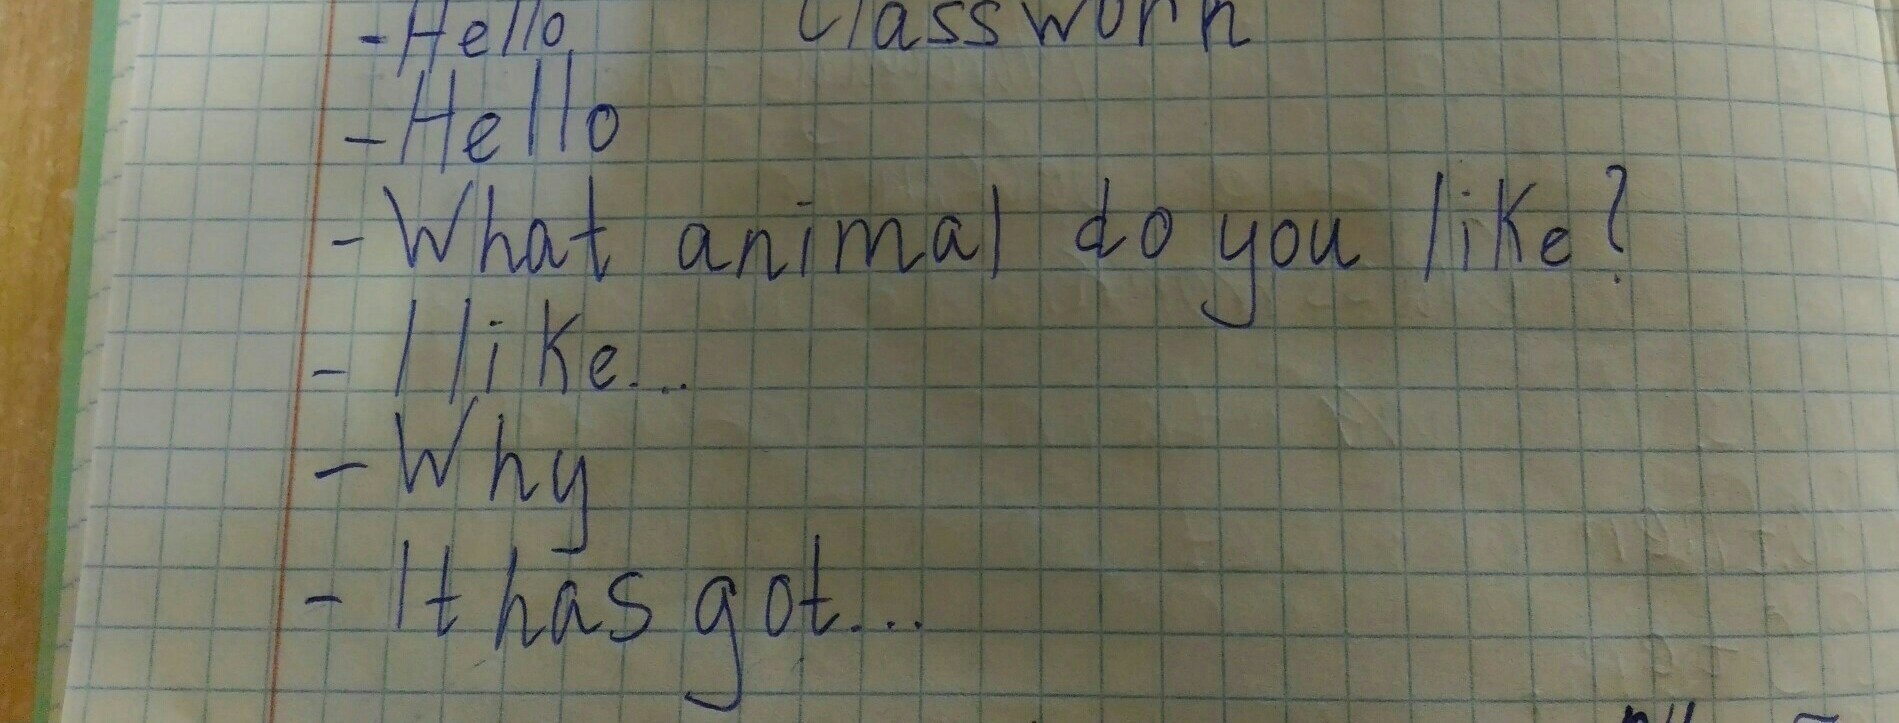 Classwork
- Hello
- Hello
- What animal do you like?
- I like...
- Why
- It has got...